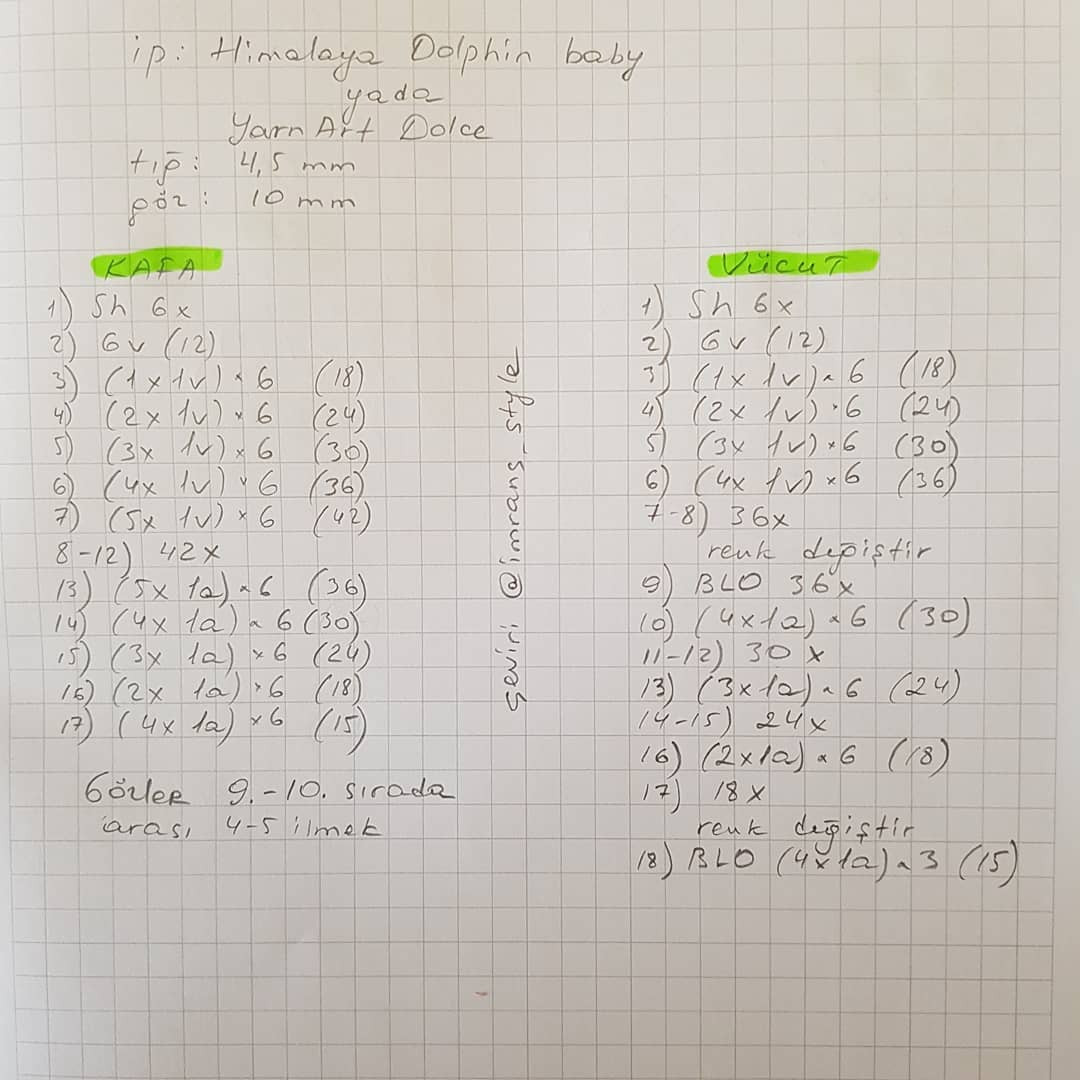 ip: Himalaya Dolphin baby
yada
YarnArt Dolce
tığ: 4,5 mm
göz: 10 mm
KAFA
1) Sh 6x
2) 6v (12)
3) (1x 1v) × 6 (18)
4) (2x 1v) × 6 (24)
5) (3x 1v) × 6 (30)
6) (4x 1v) × 6 (36)
7) (5x 1v) × 6 (42)
8-12) 42x
13) (5x 1a) × 6 (36)
14) (4x 1a) × 6 (30)
15) (3x 1a) × 6 (24)
16) (2x 1a) × 6 (18)
17) (4x 1a) × 6 (15)
Gözler 9.-10. sırada
arası 4-5 ilmek
çeviri: @imrans_style
VÜCUT
1) Sh 6x
2) 6v (12)
3) (1x 1v) × 6 (18)
4) (2x 1v) × 6 (24)
5) (3x 1v) × 6 (30)
6) (4x 1v) × 6 (36)
7-8) 36x
renk değiştir
9) BLO 36x
10) (4x1a) × 6 (30)
11-12) 30x
13) (3x1a) × 6 (24)
14-15) 24x
16) (2x1a) × 6 (18)
17) 18x
renk değiştir
18) BLO (4x1a) × 3 (15)